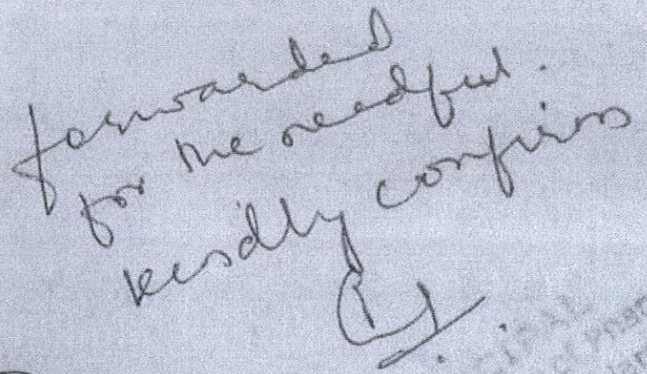 forwarded
for the needful.
kindly confirm